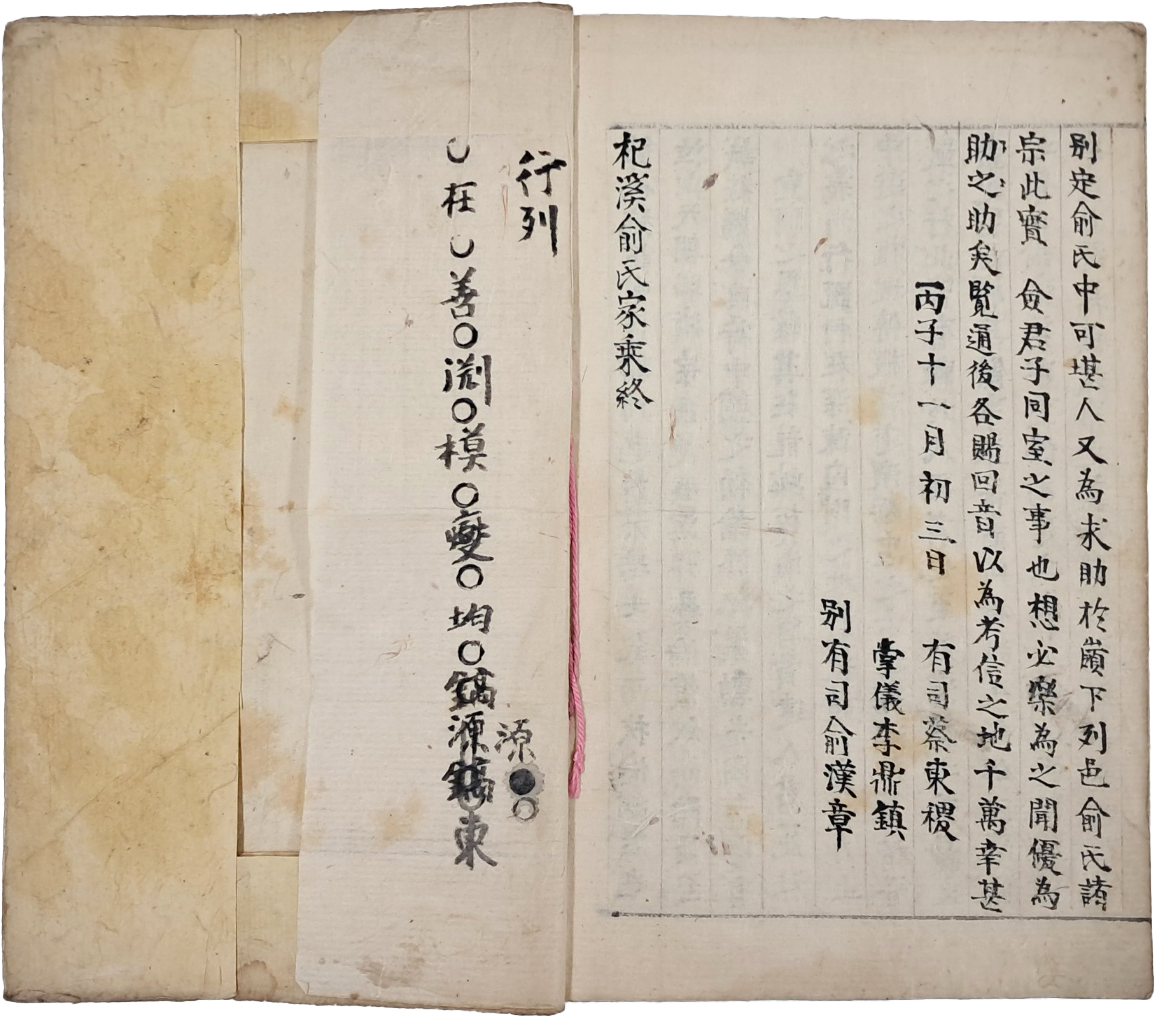 別定俞氏中可堪人又為求助於嶺下列邑俞氏諸
宗此實　僉君子同室之事也想必樂為之聞優為
助之助矣覧通後各賜回音以為考信之地千萬幸甚
丙子十一月初三日　有司蔡東稷
掌儀李鼎鎮
别有司俞漢章
杞溪俞氏家乘終
行列
○在○善○淵○模○變○均○鎬源鎬東
源●○